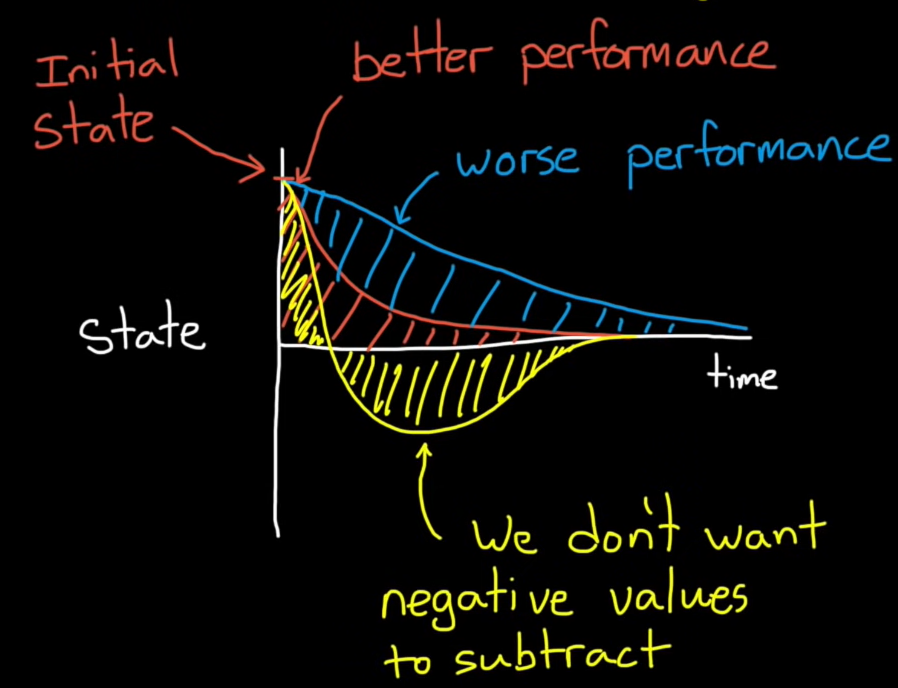 Initial
State
better performance
worse performance
State
time
We don't want
negative values
to subtract